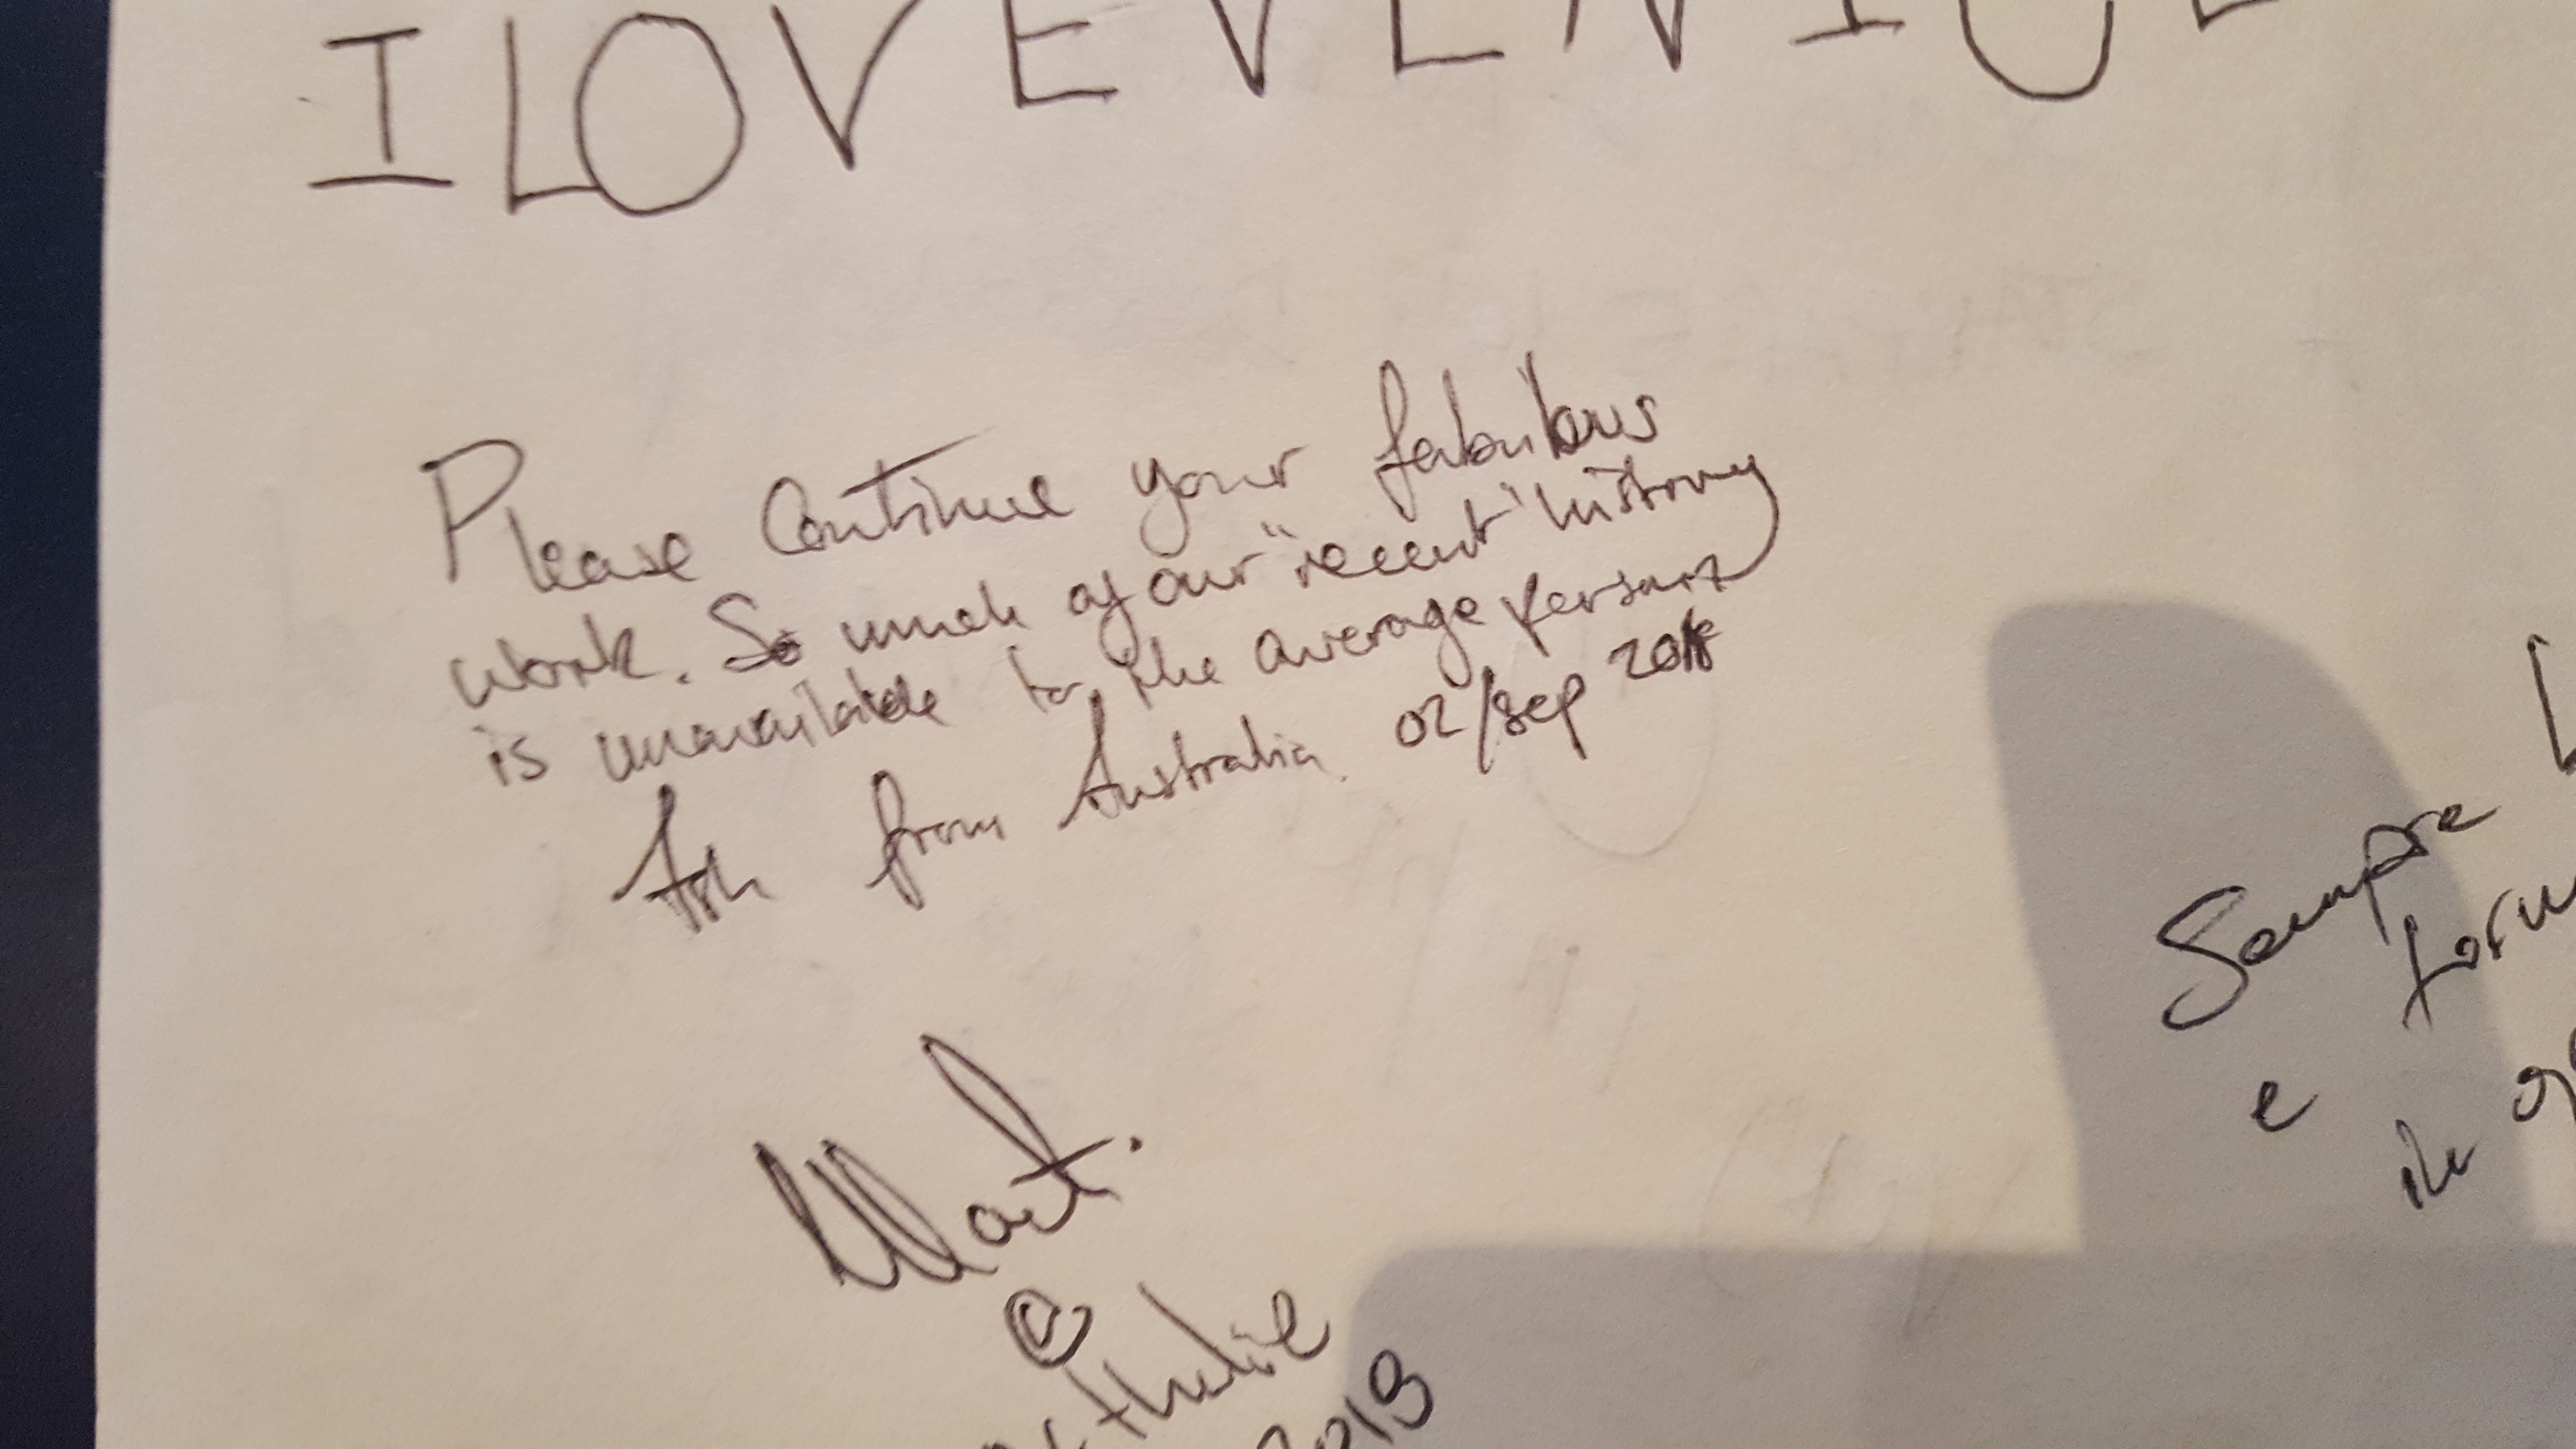 I LOVE VENICE
Please Continue your fabulous
work. So much of our "recent" history
is unavailable to the average person
from Australia. 02/Sep 2018
Sempre
e
in
2018